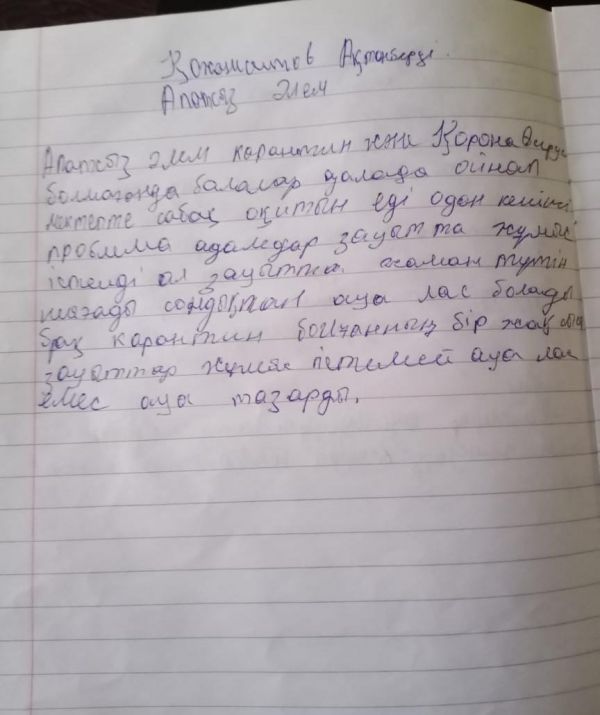 Қожаматов Ақтанберді.
Апатсыз Әлем
Апатсыз әлем карантин жәни Корона вирус
болмағанда балалар далада ойнап
мектепте сабақ оқитын еді одан кейінгі
проблима адамдар зауытта жұмыс
істейді ал зауытта жаман түтін
шағады сондықтан ауа лас болады
бірақ карантин болғанның бір жақсысы
зауыттар жұмыс істемей ауа лас
емес ауа тазарды.